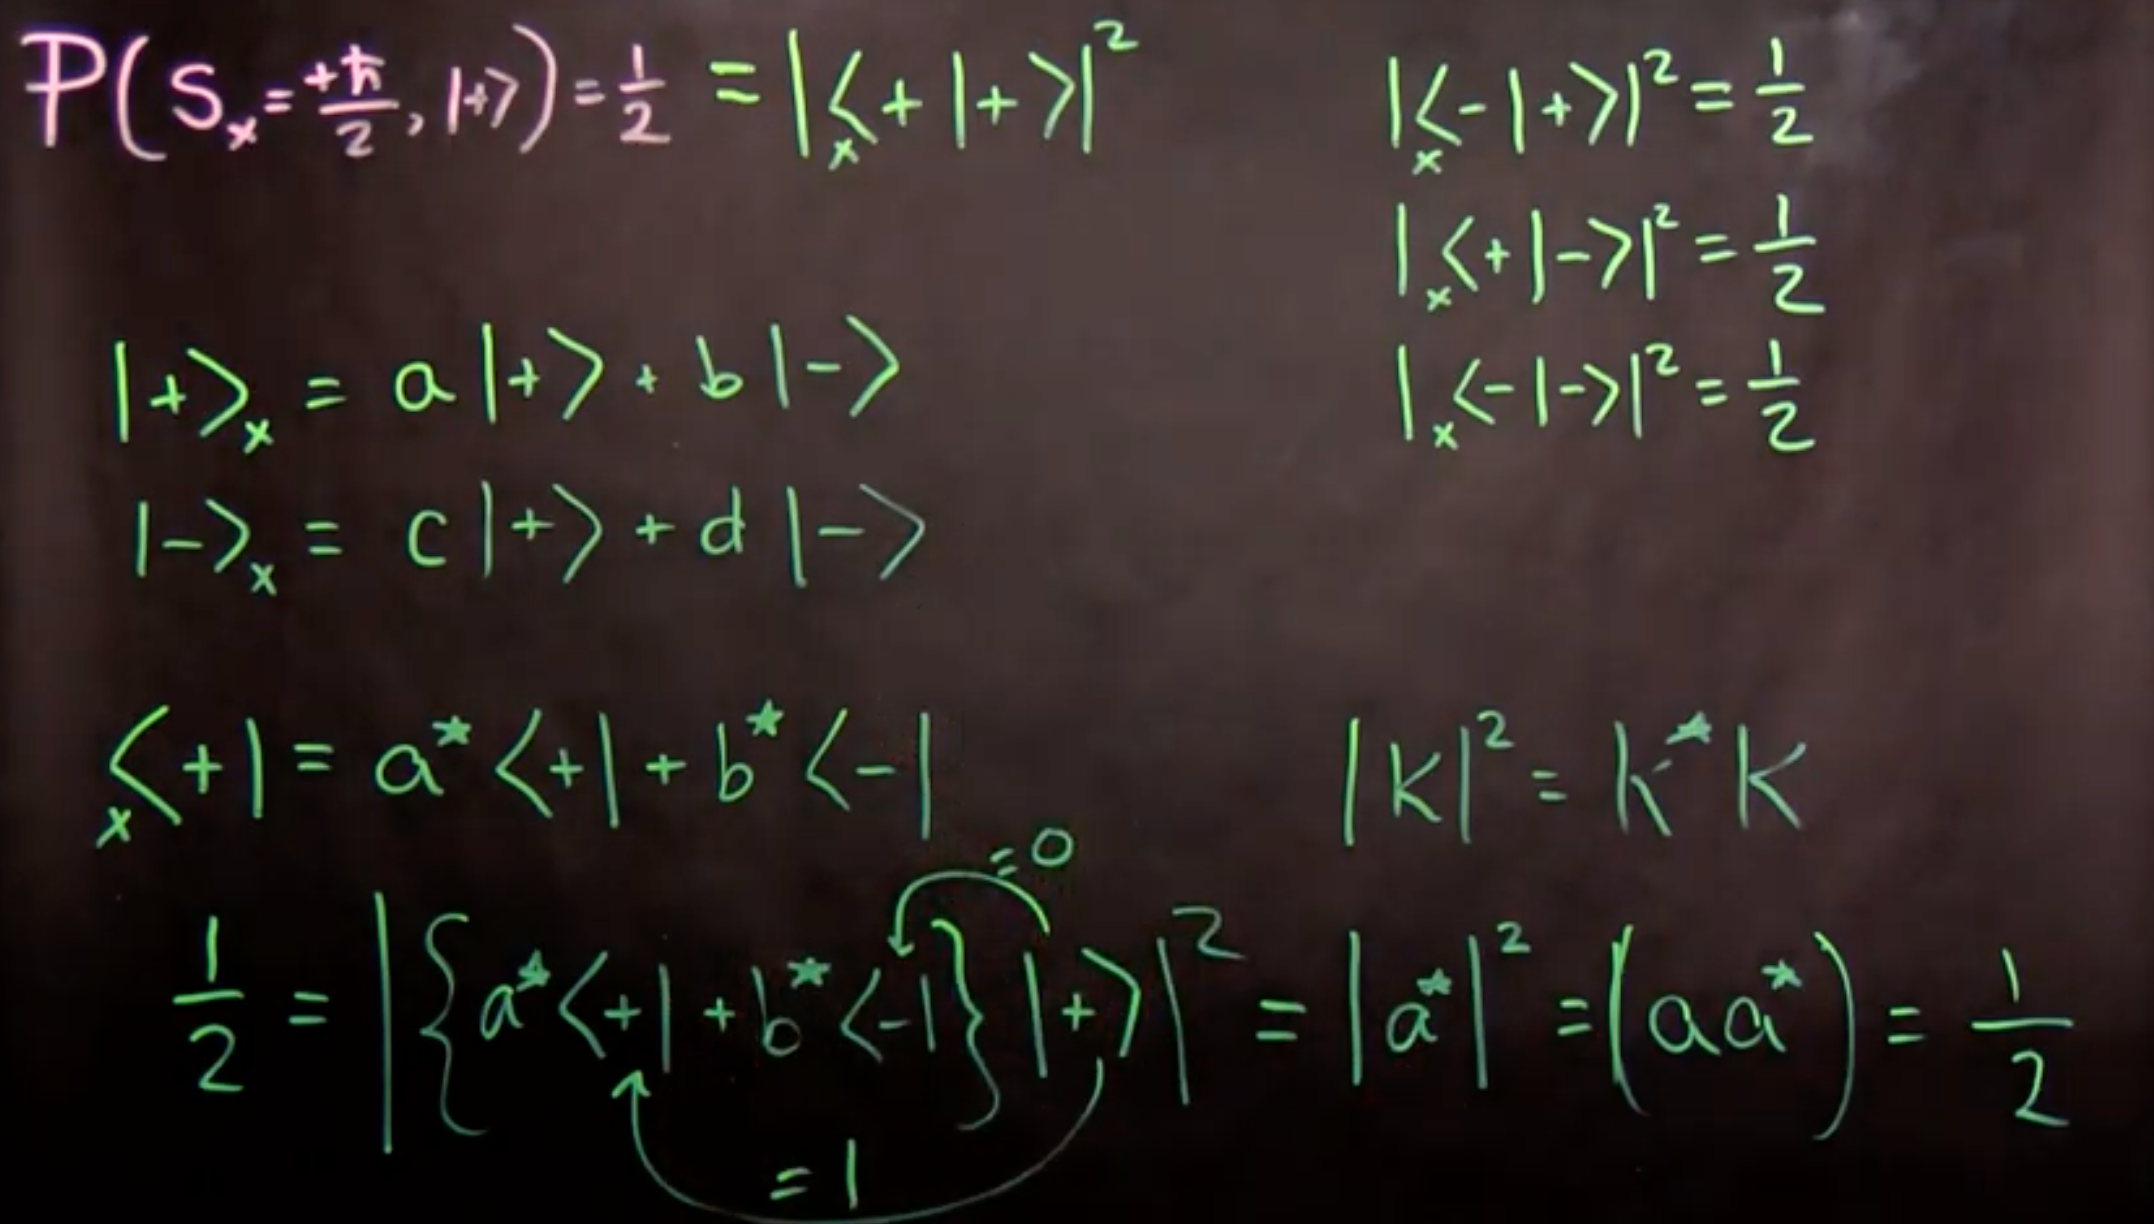 P(Sₓ = +ħ/2, |+⟩) = 1/2 = |ₓ⟨+|+⟩|²
|ₓ⟨-|+⟩|² = 1/2
|ₓ⟨+|-⟩|² = 1/2
|ₓ⟨-|-⟩|² = 1/2
|+⟩ₓ = a|+⟩ + b|-⟩
|-⟩ₓ = c|+⟩ + d|-⟩
ₓ⟨+| = a*⟨+| + b*⟨-|
|K|² = K*K
= 0
1/2 = |{a*⟨+| + b*⟨-|}|+⟩|² = |a*|² = (aa*) = 1/2
= 1